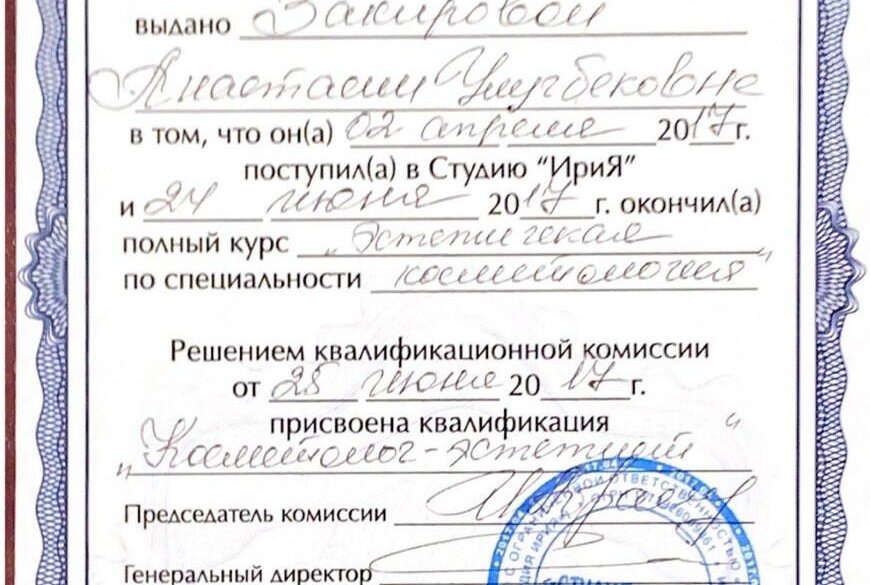 выдано Закировой
Анастасии Улугбековне
в том, что он(а) 02 апреля 2017 г.
поступил(а) в Студию "ИриЯ"
и 24 июня 2017 г. окончил(а)
полный курс „Эстетическая
по специальности косметология"
Решением квалификационной комиссии
от 25 июня 2017 г.
присвоена квалификация
„Косметолог-эстетист"
Председатель комиссии
Генеральный директор
С ОГРАНИЧЕННОЙ ОТВЕТСТВЕННОСТЬЮ